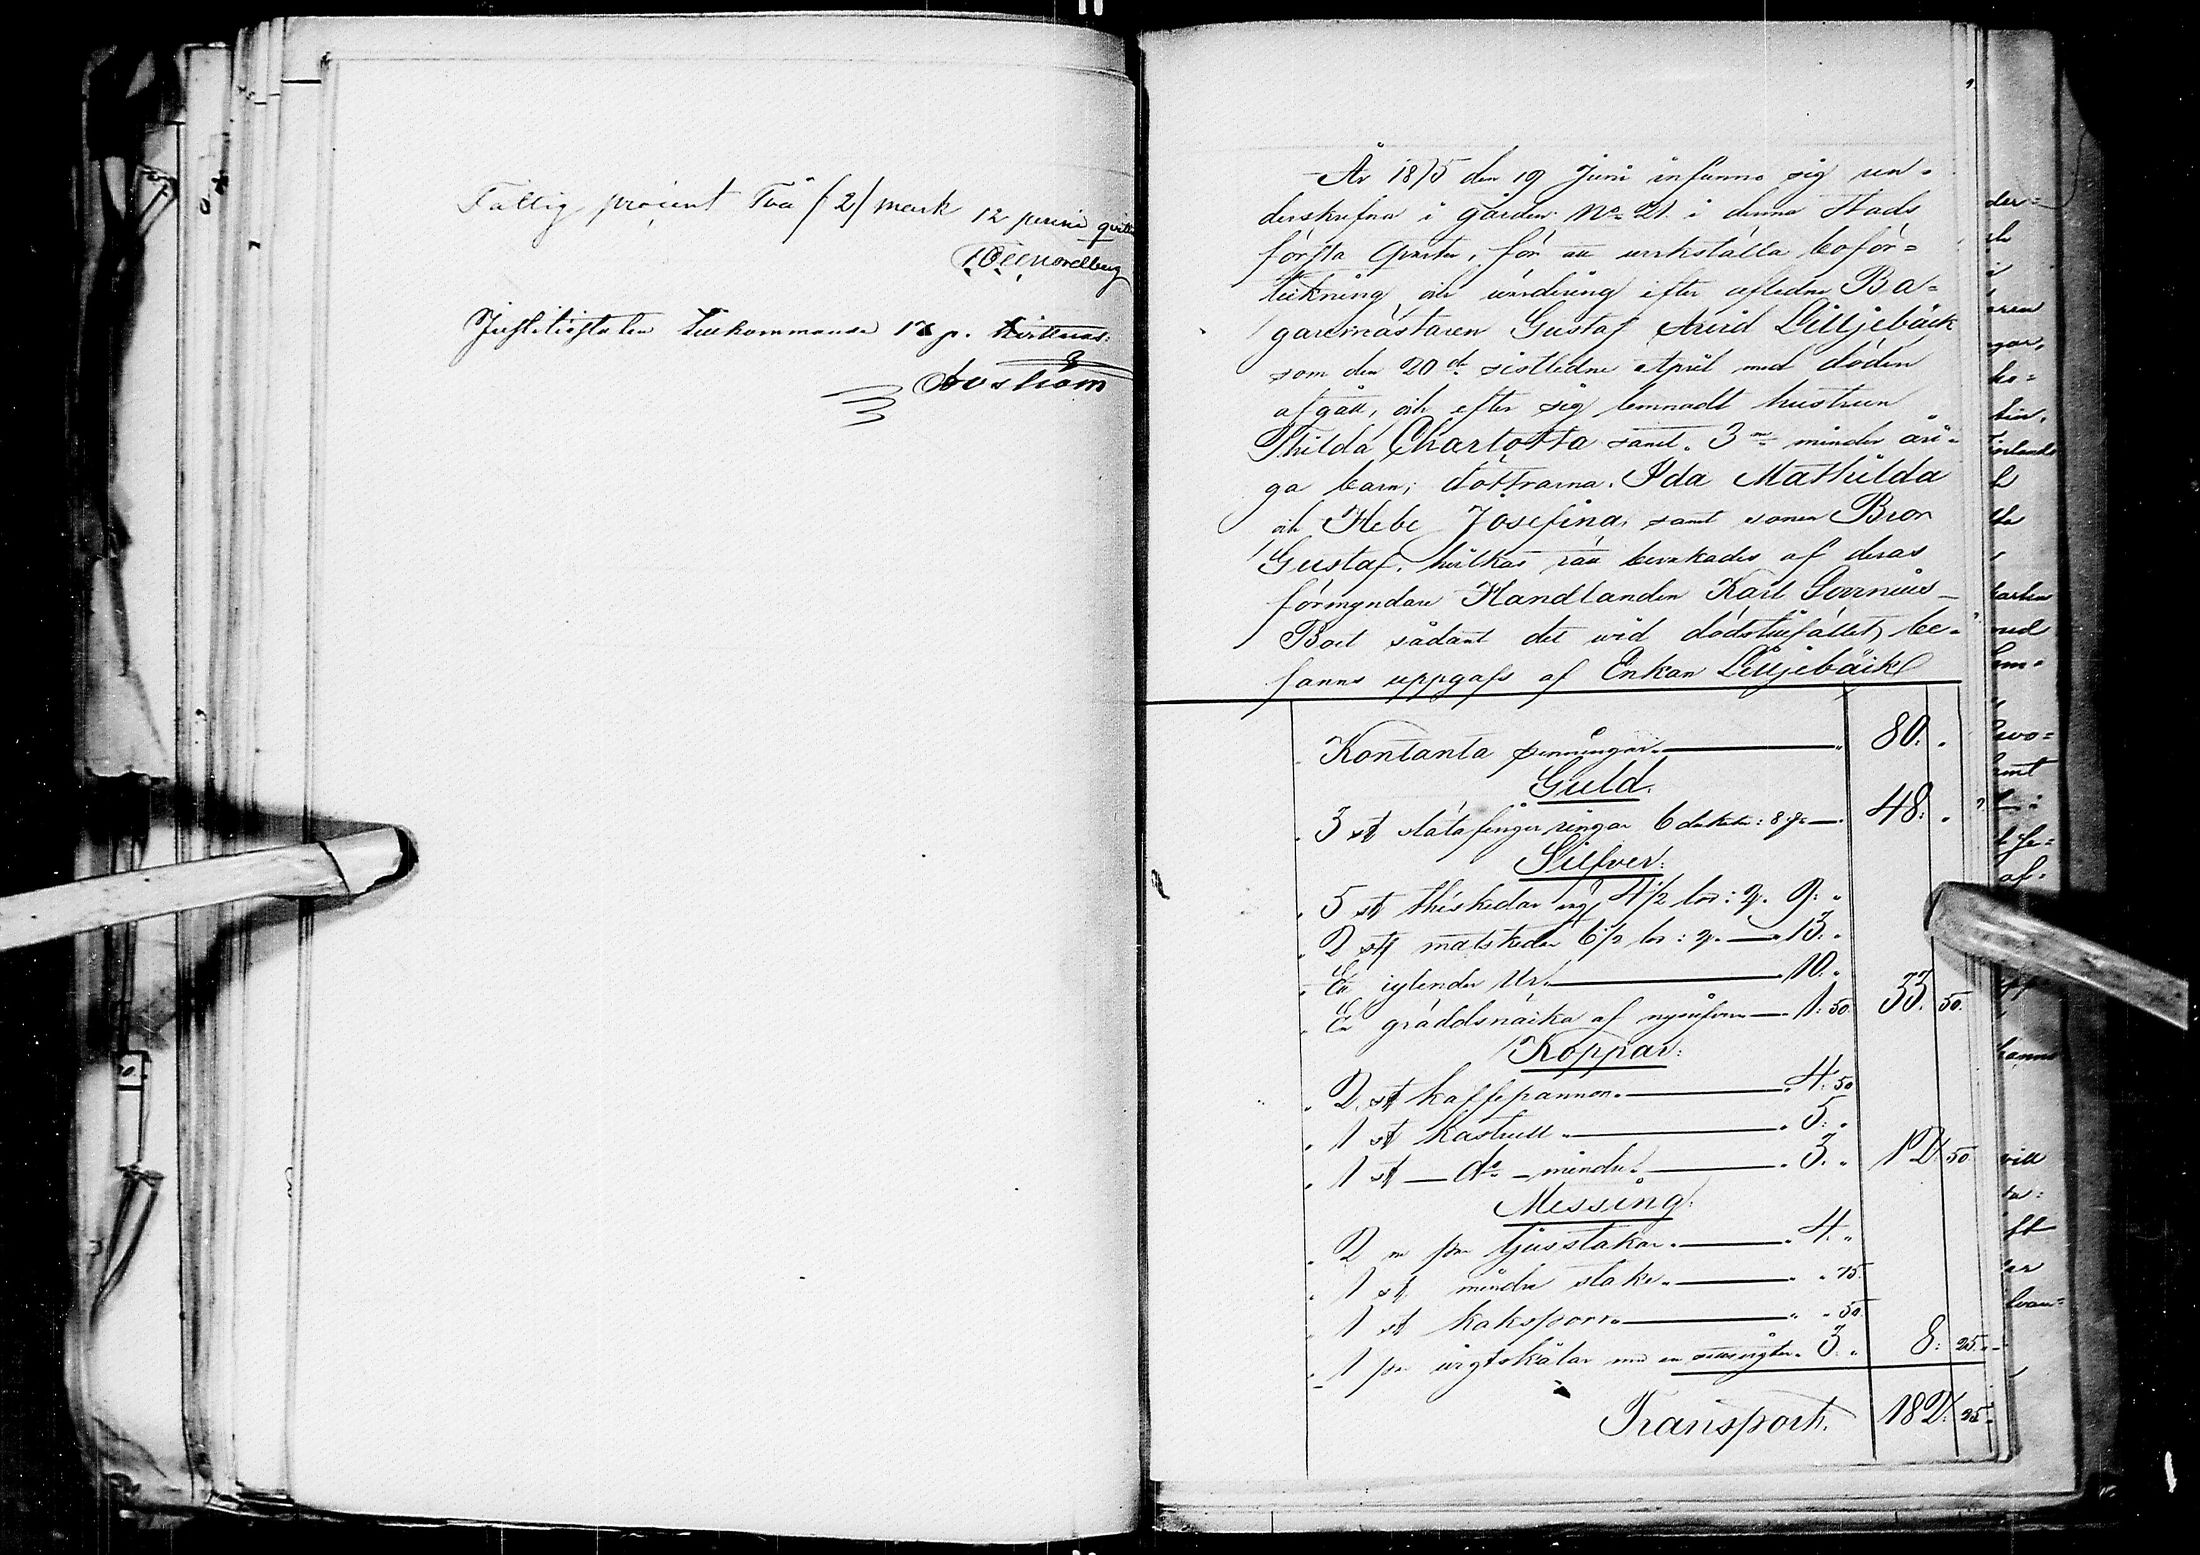 Fattig procent Två (2) mark 12 penni
Justitiestaten tillkommande 12 p. Kvitteras:
År 1875 den 19 Juni infunno sig un-
derskrifna i gården No 21. i denna Stads
första Qvarter, för att verkställa boför-
teckning och värdering efter aflidne Ba-
garemästaren Gustaf Arvid Lilljebäck
som den 20de sistledne April med döden
afgått, och efter sig lemnadt hustrun
Thilda Charlotta samt 3ne minder åri-
ga barn; döttrarna Ida Mathilda
och Hebe Josefina, samt sonen Bror
Gustaf, hvilkas rätt bevakades af deras
förmyndare Handlanden Karl
Boet sådant det vid dödstillfället be-
fanns uppgafs af Enkan Lilljebäck
Kontanta penningar 80. "
Guld.
3 st släta fingerringar 6 dukater: 8 48: "
Silfver:
5 st théskedar väg. 4 1/2 lod: 2. 9: "
2 st matskedar 6 1/2 lod: 2. 13: "
Ett cylender Ur 10. "
En gräddsnäcka af nysilfver 1: 50. 33. 50.
Koppar:
2 st kaffepannor 4: 50
1 st kastrull 5: "
1 st do mindre 3. " 12: 50
Messing:
2 ne par ljusstakar 4. "
1 st. mindre stake " 75.
1 st kaksporre " 50
1 par vigtskålar med en 3. " 8: 25.
Transport. 182: 25.